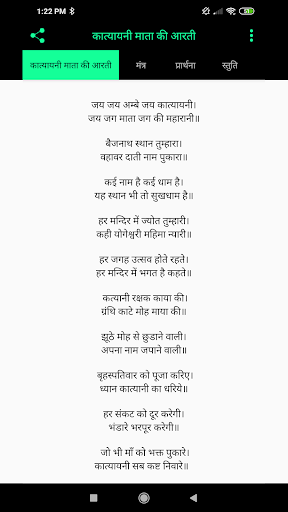 1:22 PM
कात्यायनी माता की आरती
कात्यायनी माता की आरती मंत्र प्रार्थना स्तुति
जय जय अम्बे जय कात्यायनी।
जय जग माता जग की महारानी॥
बैजनाथ स्थान तुम्हारा।
वहावर दाती नाम पुकारा॥
कई नाम है कई धाम है।
यह स्थान भी तो सुखधाम है॥
हर मन्दिर में ज्योत तुम्हारी।
कही योगेश्वरी महिमा न्यारी॥
हर जगह उत्सव होते रहते।
हर मन्दिर में भगत है कहते॥
कत्यानी रक्षक काया की।
ग्रंथि काटे मोह माया की॥
झूठे मोह से छुडाने वाली।
अपना नाम जपाने वाली॥
बृहस्पतिवार को पूजा करिए।
ध्यान कात्यानी का धरिये॥
हर संकट को दूर करेगी।
भंडारे भरपूर करेगी॥
जो भी माँ को भक्त पुकारे।
कात्यायनी सब कष्ट निवारे॥